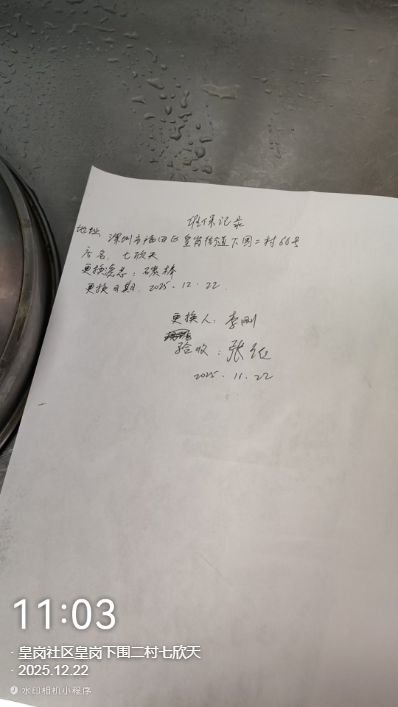 维保记录
地址：深圳市福田区皇岗街道下围二村66号
店名：七欣天
更换信息：碳棒
更换日期：2025.12.22.
更换人：李刚
验收：张
2025.11.22
11:03
· 皇岗社区皇岗下围二村七欣天
· 2025.12.22
水印相机小程序